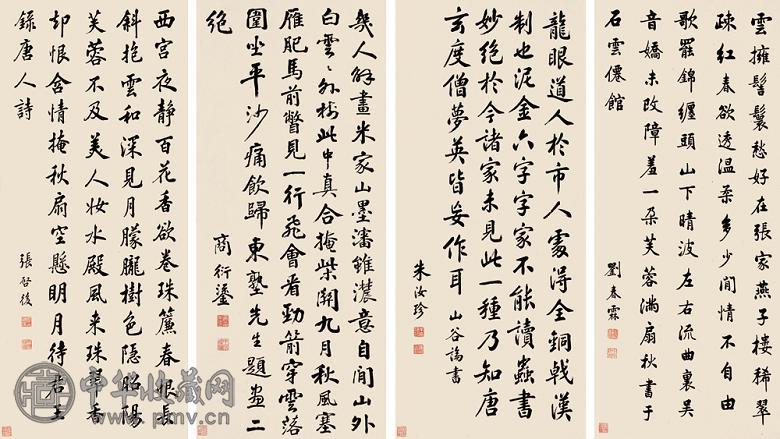 雲擁髻鬟愁好在張家燕子樓稀翠
疎紅春欲透溫柔多少閒情不自由
歌罷錦纏頭山下晴波左右流曲裏吳
音嬌未改障羞一朶芙蓉滿扇秋書于
石雲僊館
劉春霖
龍眼道人於市人處得全銅戟漢
制也泥金六字字家不能讀蟲書
妙絕於今諸家未見此一種乃知唐
玄度僧夢英皆妄作耳 山谷論書
朱汝珍
幾人解畫米家山墨瀋雖濃意自閒山外
白雲〻外樹此中真合掩柴關九月秋風塞
雁肥馬前瞥見一行飛會看勁箭穿雲落
圍坐平沙痛飲歸 東塾先生題畫二
絕
商衍鎏
西宮夜靜百花香欲卷珠簾春恨長
斜抱雲和深見月朦朧樹色隱昭陽
芙蓉不及美人妝水殿風來珠翠香
却恨含情掩秋扇空懸明月待君王
錄唐人詩
張啓後
中华收藏网
www.pmv.cn